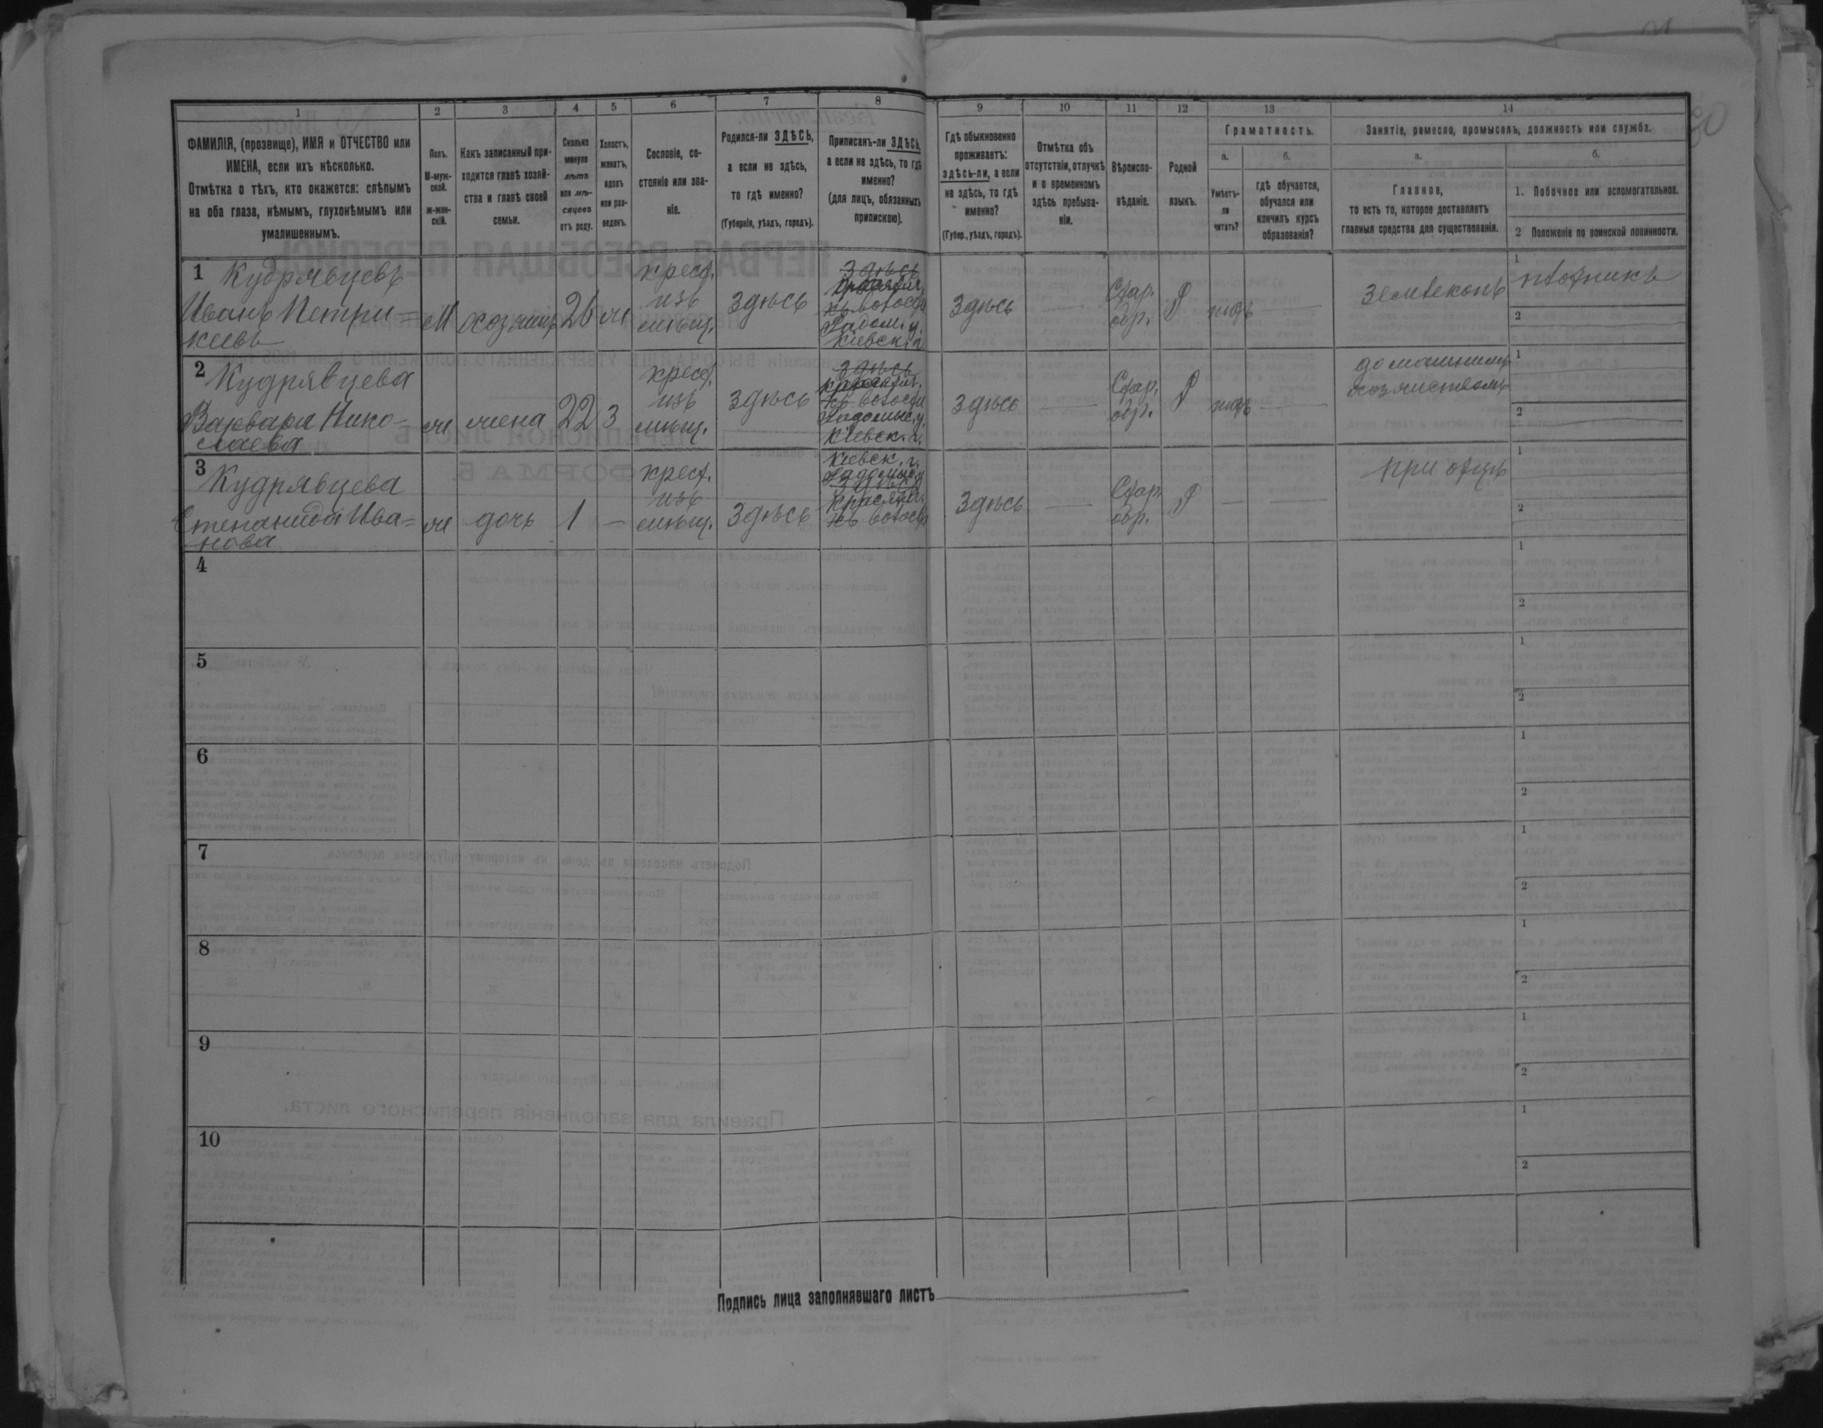 1
2
3
4
5
6
7
8
9
10
11
12
13
14
ФАМИЛІЯ, (прозвище), ИМЯ и ОТЧЕСТВО или
ИМЕНА, если ихъ нѣсколько.
Отмѣтка о тѣхъ, кто окажется: слѣпымъ
на оба глаза, нѣмымъ, глухонѣмымъ или
умалишеннымъ.
Полъ.
М-муж-
ской.
ж-жен-
скій.
Какъ записанный при-
ходится главѣ хозяй-
ства и главѣ своей
семьи.
Сколько
минуло
лѣтъ
или мѣ-
сяцевъ
отъ роду.
Холостъ,
женатъ,
вдовъ
или раз-
веденъ.
Сословіе, со-
стояніе или зва-
ніе.
Родился-ли ЗДѢСЬ,
а если не здѣсь,
то гдѣ именно?
(Губернія, уѣздъ, городъ).
Приписанъ-ли ЗДѢСЬ,
а если не здѣсь, то гдѣ
именно?
(для лицъ, обязанныхъ
припискою).
Гдѣ обыкновенно
проживаетъ:
здѣсь-ли, а если
не здѣсь, то гдѣ
именно?
(Губер., уѣздъ, городъ).
Отмѣтка объ
отсутствіи, отлучкѣ
и о временномъ
здѣсь пребыва-
ніи.
Вѣроиспо-
вѣданіе.
Родной
языкъ.
Грамотность.
а.
Умѣетъ-
ли
читать?
б.
гдѣ обучается,
обучался или
кончилъ курсъ
образованія?
Занятіе, ремесло, промыселъ, должность или служба.
а.
Главное,
то есть то, которое доставляетъ
главныя средства для существованія.
б.
1. Побочное или вспомогательное.
2 Положеніе по воинской повинности.
1 Кудрявцевъ
Иванъ Петри=
кеевъ
М хозяинъ 26 ж
крест.
изъ
мѣщ.
здѣсь
здѣсь
волости
Радом. у.
Кіевск. г.
здѣсь
—
Стар.
обр.
Р
—
земледѣліе
1 плотникъ
2
2 Кудрявцева
Варвара Нико=
лаева
ж жена 22 З
крест.
изъ
мѣщ.
здѣсь
здѣсь
волости
Радомыс. у.
Кіевск. г.
здѣсь
—
Стар.
обр.
Р
—
домашнимъ
хозяйствомъ
1
2
3 Кудрявцева
Степанида Ива=
нова
ж дочь 1 —
крест.
изъ
мѣщ.
здѣсь
Кіевск. г.
Радомыс. у.
волости
здѣсь
—
Стар.
обр.
Р
—
—
при отцѣ
1
2
4
1
2
5
1
2
6
1
2
7
1
2
8
1
2
9
1
2
10
1
2
Подпись лица заполнявшаго листъ